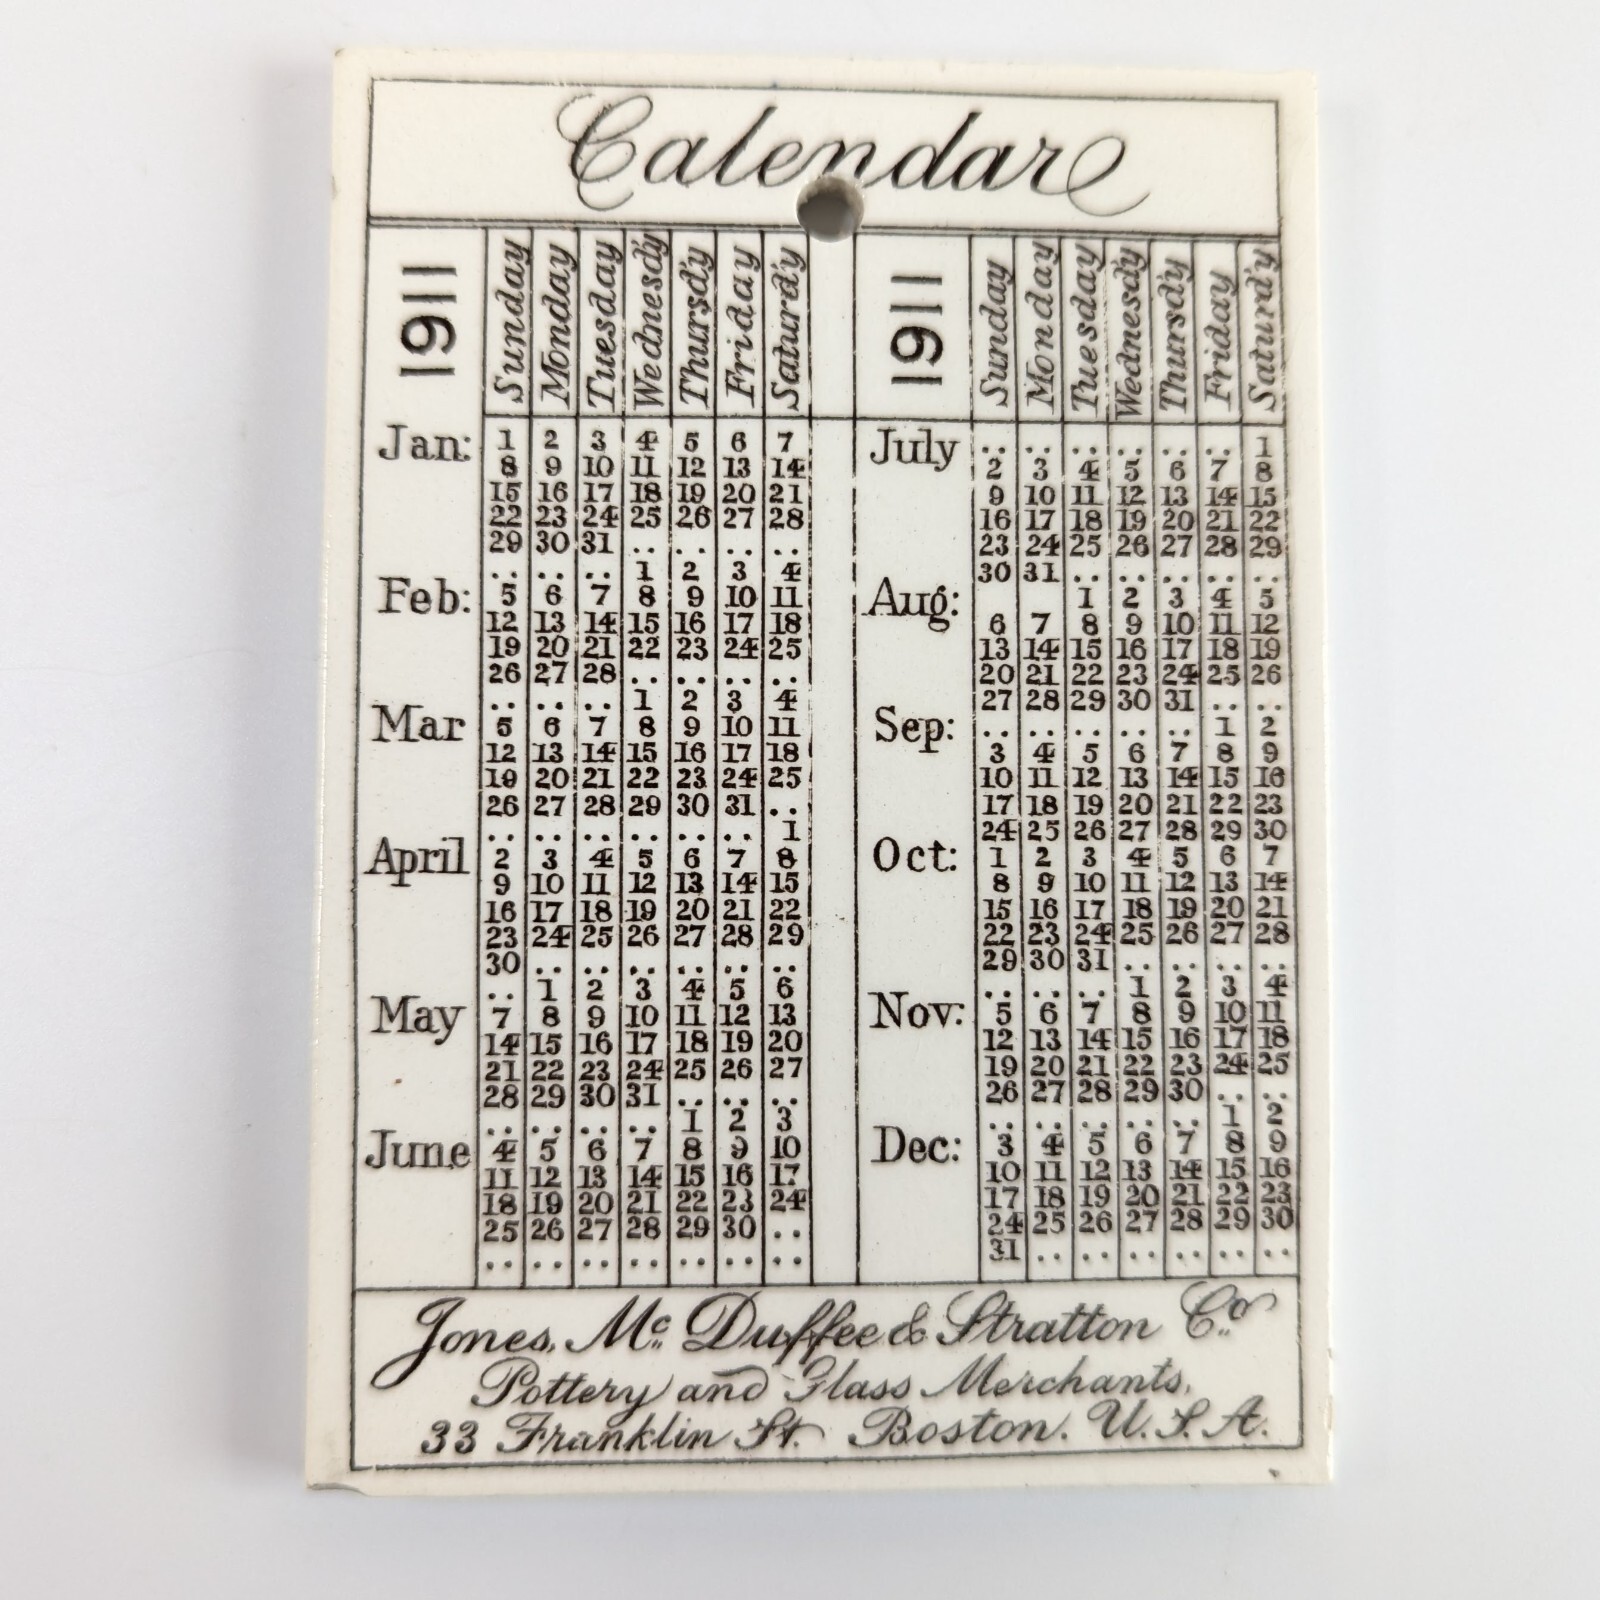 Calendar
1911 Sunday Monday Tuesday Wednesdy Thursdy Friday Saturdy
Jan: 1 2 3 4 5 6 7
8 9 10 11 12 13 14
15 16 17 18 19 20 21
22 23 24 25 26 27 28
29 30 31 .. .. .. ..
.. .. .. 1 2 3 4
Feb: 5 6 7 8 9 10 11
12 13 14 15 16 17 18
19 20 21 22 23 24 25
26 27 28 .. .. .. ..
.. .. .. 1 2 3 4
Mar 5 6 7 8 9 10 11
12 13 14 15 16 17 18
19 20 21 22 23 24 25
26 27 28 29 30 31 ..
.. .. .. .. .. .. 1
April 2 3 4 5 6 7 8
9 10 11 12 13 14 15
16 17 18 19 20 21 22
23 24 25 26 27 28 29
30 .. .. .. .. .. ..
.. 1 2 3 4 5 6
May 7 8 9 10 11 12 13
14 15 16 17 18 19 20
21 22 23 24 25 26 27
28 29 30 31 .. .. ..
.. .. .. .. 1 2 3
June 4 5 6 7 8 9 10
11 12 13 14 15 16 17
18 19 20 21 22 23 24
25 26 27 28 29 30 ..
.. .. .. .. .. .. ..
1911 Sunday Monday Tuesday Wednesdy Thursdy Friday Saturdy
July .. .. .. .. .. .. 1
2 3 4 5 6 7 8
9 10 11 12 13 14 15
16 17 18 19 20 21 22
23 24 25 26 27 28 29
30 31 .. .. .. .. ..
Aug: 1 2 3 4 5
6 7 8 9 10 11 12
13 14 15 16 17 18 19
20 21 22 23 24 25 26
27 28 29 30 31 .. ..
Sep: .. .. .. .. .. 1 2
3 4 5 6 7 8 9
10 11 12 13 14 15 16
17 18 19 20 21 22 23
24 25 26 27 28 29 30
Oct: 1 2 3 4 5 6 7
8 9 10 11 12 13 14
15 16 17 18 19 20 21
22 23 24 25 26 27 28
29 30 31 .. .. .. ..
.. .. .. 1 2 3 4
Nov: 5 6 7 8 9 10 11
12 13 14 15 16 17 18
19 20 21 22 23 24 25
26 27 28 29 30 .. ..
.. .. .. .. .. 1 2
Dec: 3 4 5 6 7 8 9
10 11 12 13 14 15 16
17 18 19 20 21 22 23
24 25 26 27 28 29 30
31 .. .. .. .. .. ..
Jones, Mc Duffee & Stratton Co.
Pottery and Glass Merchants,
33 Franklin St. Boston. U.S.A.